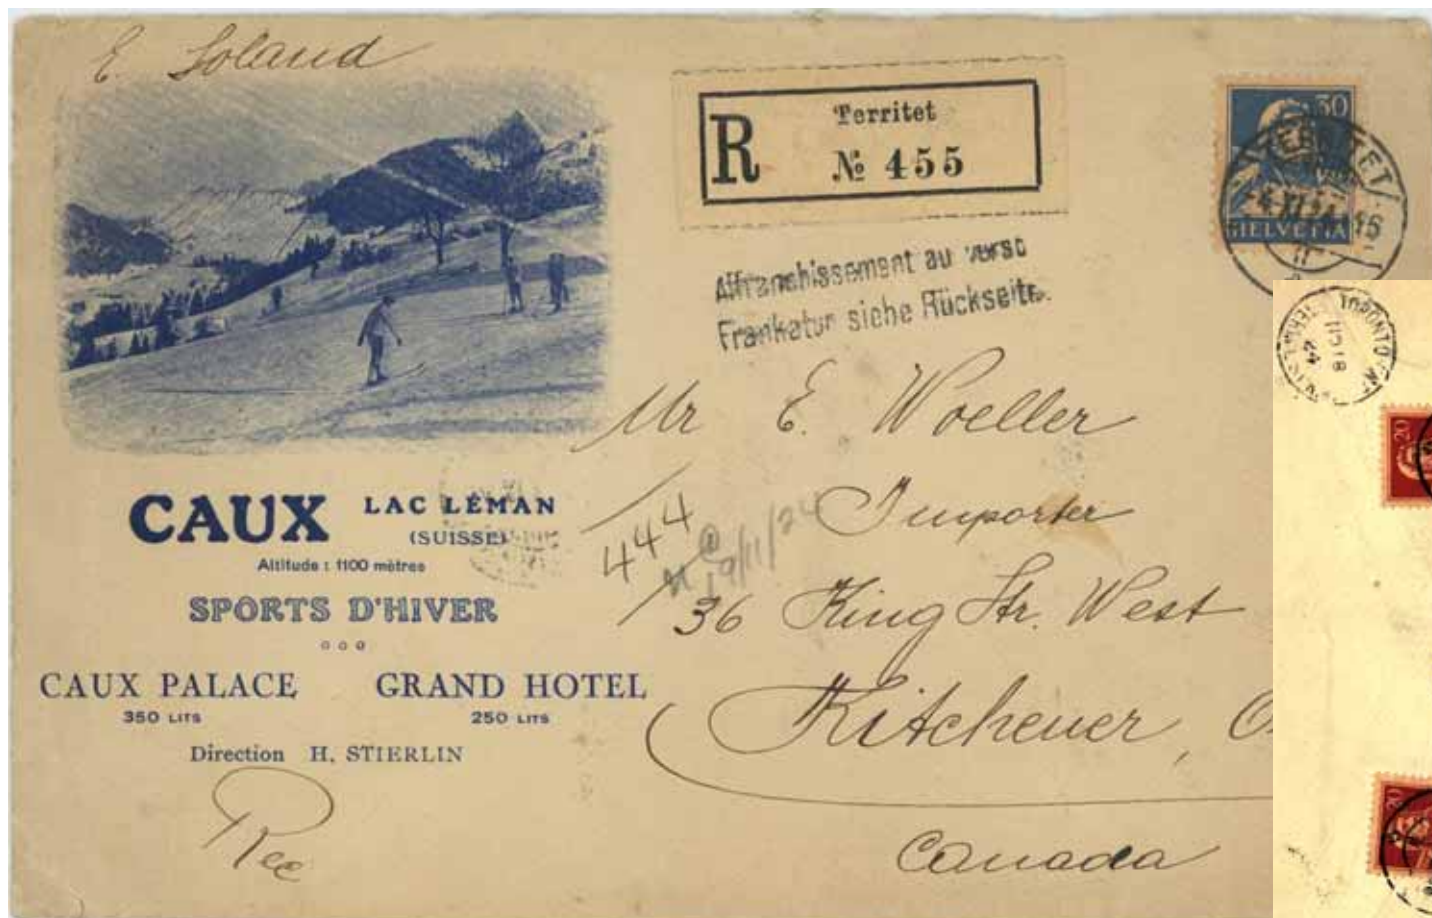 E. Soland
R
Territet
№ 455
30
TERRITET
-4.XI.24.16
HELVETIA
Affranchissement au verso
Frankatur siehe Rückseite.
TORONTO
81 11
24
20
Mr E. Woeller
Importer
36 King Str. West
Kitchener, O
Canada
444
19/11/24
CAUX LAC LÉMAN
(SUISSE)
Altitude : 1100 mètres
SPORTS D'HIVER
CAUX PALACE GRAND HOTEL
350 LITS 250 LITS
Direction H. STIERLIN
Rec
20